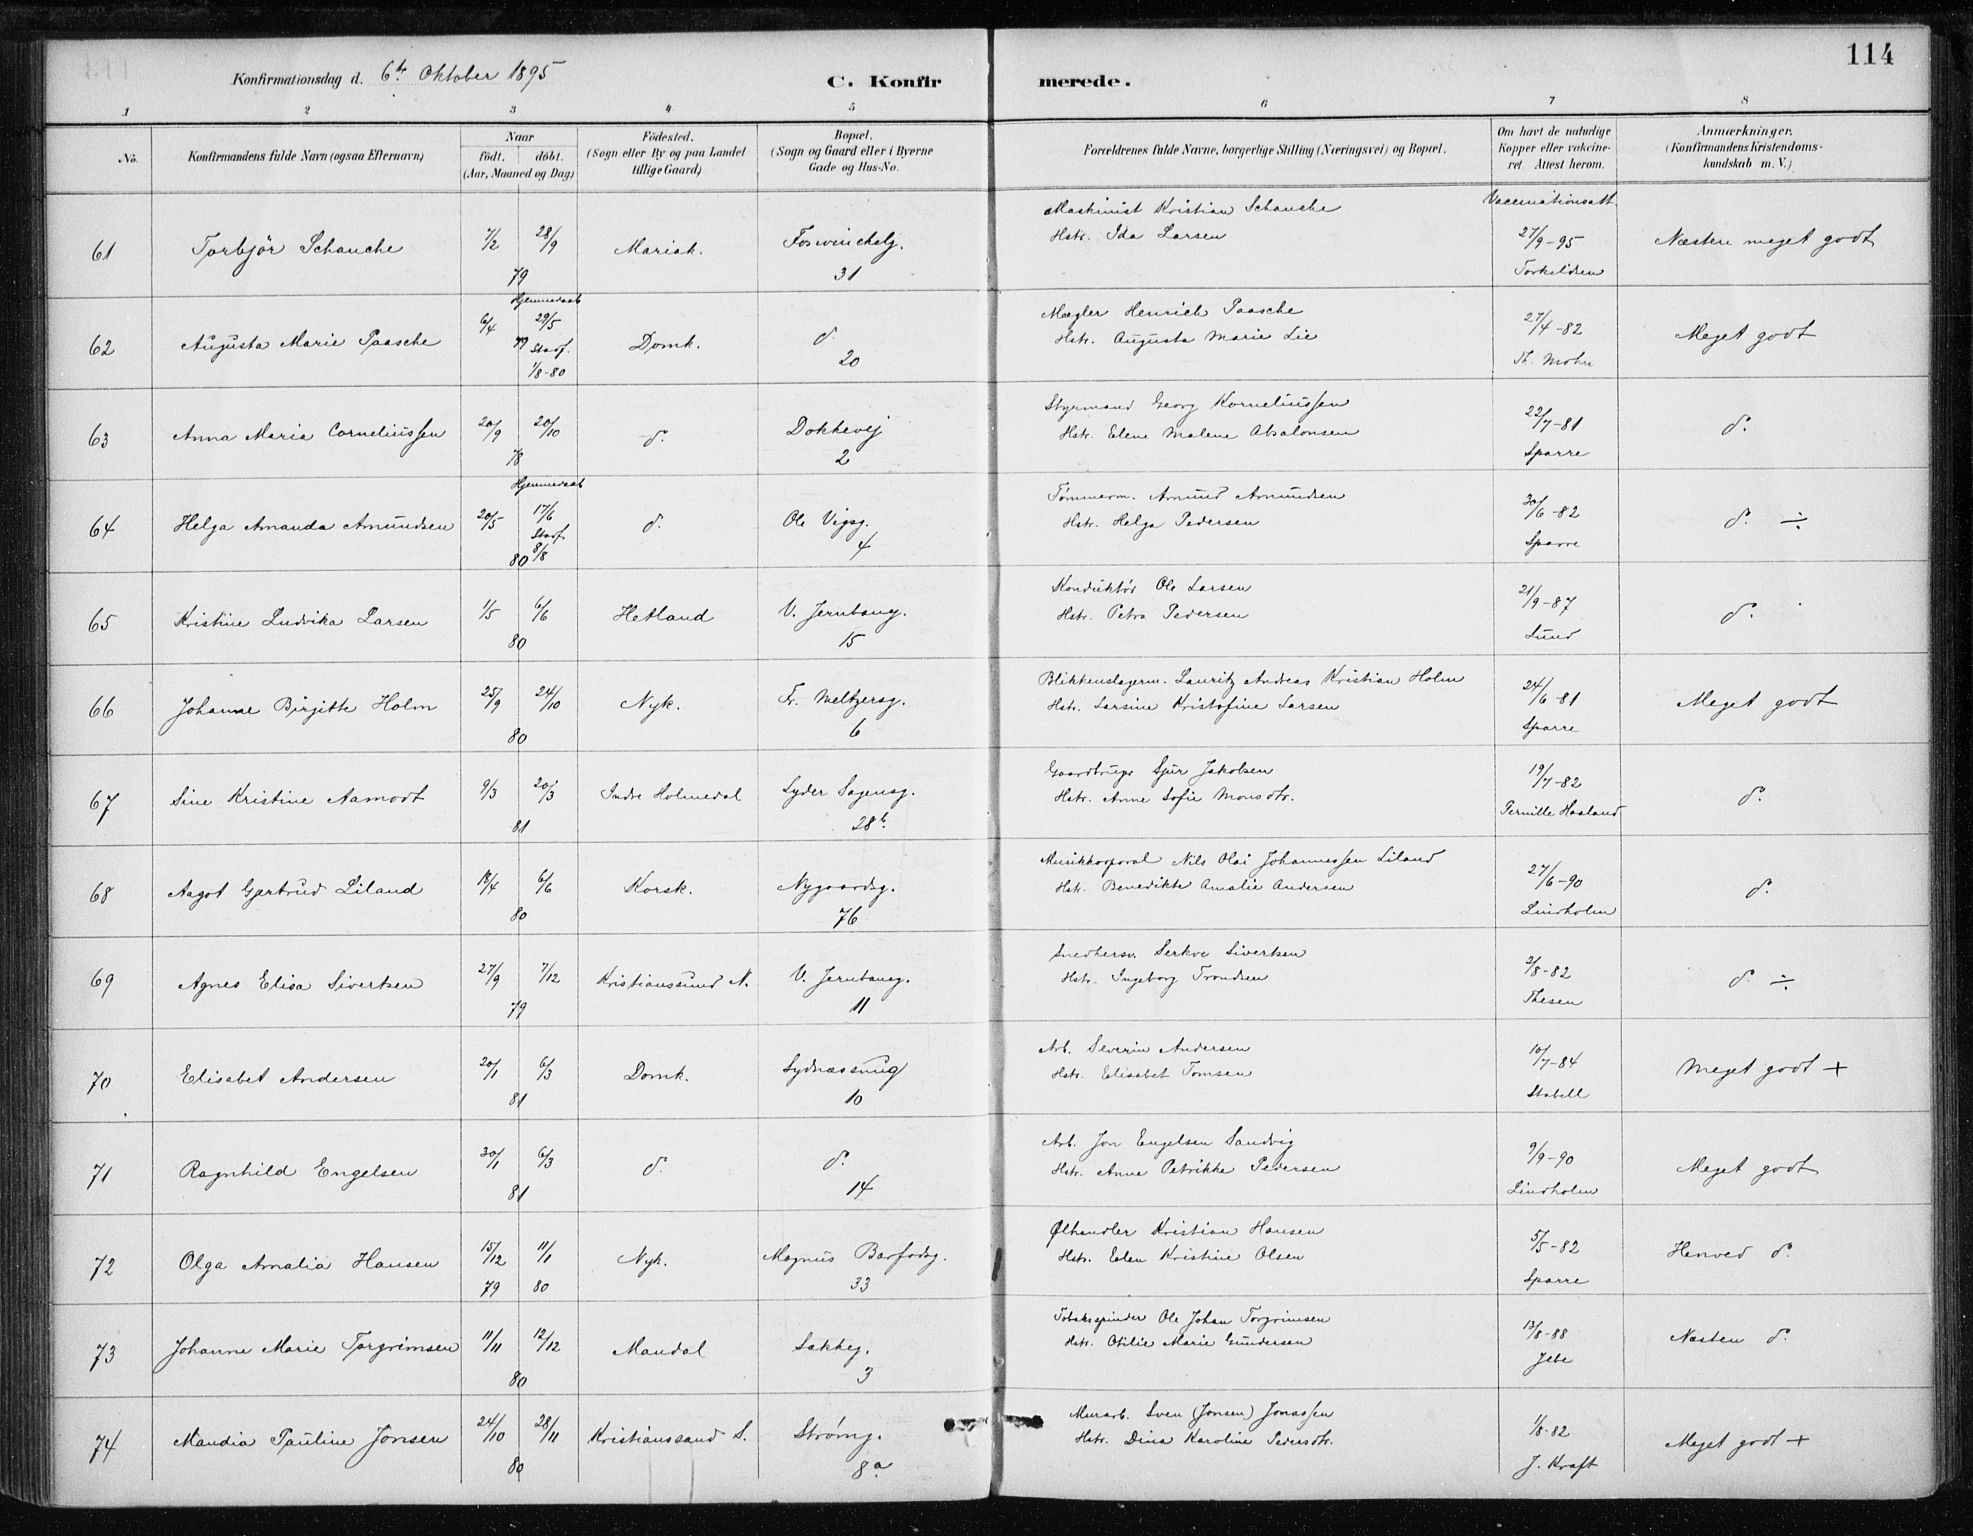 114
Konfirmationsdag d. 6te Oktober 1895
C. Konfirmerede.
1 2 3 4 5 6 7 8
No. | Konfirmandens fulde Navn (ogsaa Efternavn) | Naar födt. döbt. (Aar, Maaned og Dag) | Födested. (Sogn eller By og paa Landet tillige Gaard) | Bopæl. (Sogn og Gaard eller i Byerne Gade og Hus-No. | Forældrenes fulde Navne, borgerlige Stilling (Næringsvei) og Bopæl. | Om havt de naturlige Kopper eller vakcineret. Attest herom. | Anmærkninger. (Konfirmandens Kristendomskundskab m. V.)
Vaccinationsatt.
61 | Torbjør Schanche | 7/2 28/9 79 | Mariak. | Foswinckelg. 31 | Maskinist Kristian Schanche Hstr. Ida Larsen | 27/9-95 Torkildsen | Næsten meget godt
62 | Augusta Marie Paasche | 6/4 79 Hjemmedøbt 29/5 Stadf. 1/8-80 | Domk. | d. 20 | Mægler Henrich Paasche Hstr. Augusta Marie Lie | 27/4-82 Th. Mohn | Meget godt
63 | Anna Maria Corneliussen | 20/9 20/10 78 | d. | Dokkevej 2 | Styrmand Georg Korneliussen Hstr. Elene Malene Absalonsen | 22/7-81 Sparre | d.
64 | Helga Amanda Amundsen | 20/5 80 Hjemmedøbt 17/6 Stadf. 8/8 | d. | Ole Vigsg. 4 | Tømmerm. Amund Amundsen Hstr. Helga Pedersen | 30/6-82 Sparre | d. ÷
65 | Kristine Ludvika Larsen | 1/5 6/6 80 | Hetland | V. Jernbaneg. 15 | Konduktør Ole Larsen Hstr. Petra Pedersen | 21/9-87 Lund | d.
66 | Johanne Birgitte Holm | 25/9 24/10 80 | Nyk. | Fr. Meltzersg. 6 | Blikkenslagerm. Lauritz Andreas Kristian Holm Hstr. Larsine Kristofine Larsen | 24/6-81 Sparre | Meget godt
67 | Sine Kristine Aamodt | 9/3 20/3 81 | Indre Holmedal | Lyder Sagensg. 28b. | Gaardbruger Sjur Jakobsen Hstr. Anne Sofie Monsdtr. | 19/7-82 Pernille Haaland | d.
68 | Aagot Gertrud Liland | 18/4 6/6 80 | Korsk. | Nygaardsg. 76 | Musikkorporal Nils Olai Johannessen Liland Hstr. Benedikte Amalie Andersen | 27/6-90 Lindholm | d.
69 | Agnes Elisa Sivertsen | 27/9 7/12 79 | Kristianssund N. | V. Jernbaneg. 11 | Snedkersv. Serkve Sivertsen Hstr. Ingeborg Trondsen | 2/8-82 Thesen | d. ÷
70 | Elisabet Andersen | 20/1 6/3 81 | Domk. | Sydnæssmug 10 | Arb. Severin Andersen Hstr. Elisabet Tomsen | 10/7-84 Stabell | Meget godt +
71 | Ragnhild Engelsen | 30/1 6/3 81 | d. | d. 14 | Arb. Jon Engelsen Sandvig Hstr. Anne Petrikke Pedersen | 9/9-90 Lindholm | Meget godt
72 | Olga Amalia Hansen | 15/12 79 11/1 80 | Nyk. | Magnus Barfodsg. 33 | Ølhandler Kristian Hansen Hstr. Elen Kristine Olsen | 5/5-82 Sparre | Henved d.
73 | Johanne Marie Torgrimsen | 11/11 12/12 80 | Mandal | Lakkeg. 3 | Tobaksspinder Ole Johan Torgrimsen Hstr. Otilie Marie Gundersen | 13/8-88 Jebe | Næsten d.
74 | Mandia Pauline Jonsen | 24/10 28/11 80 | Kristianssand S. | Strømg. 8a | Murarb. Sven (Jonsen) Jonassen Hstr. Dina Karoline Pedersdtr. | 1/8-82 J. Kraft | Meget godt +